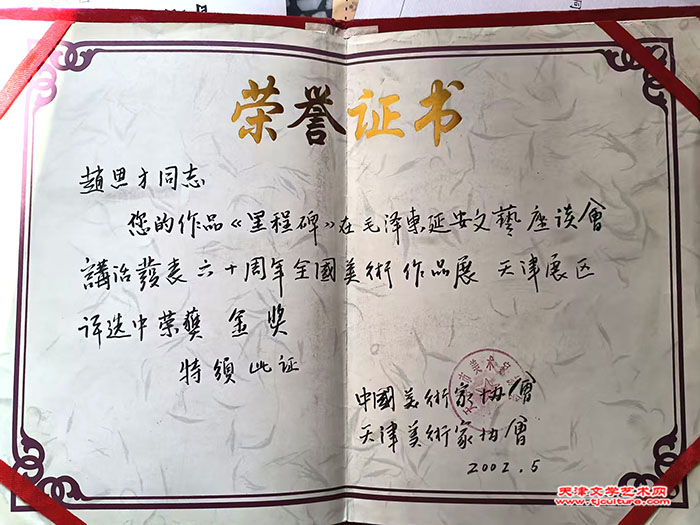 荣誉证书
趙思才同志
您的作品《里程碑》在毛泽東延安文藝座谈會
講治發表六十周年全國美術作品展 天津展区
评选中荣獎 金奖
特頒此证
中國美術家协會
天津美術家协會
2002.5
天津文学艺术网
www.tjculture.com